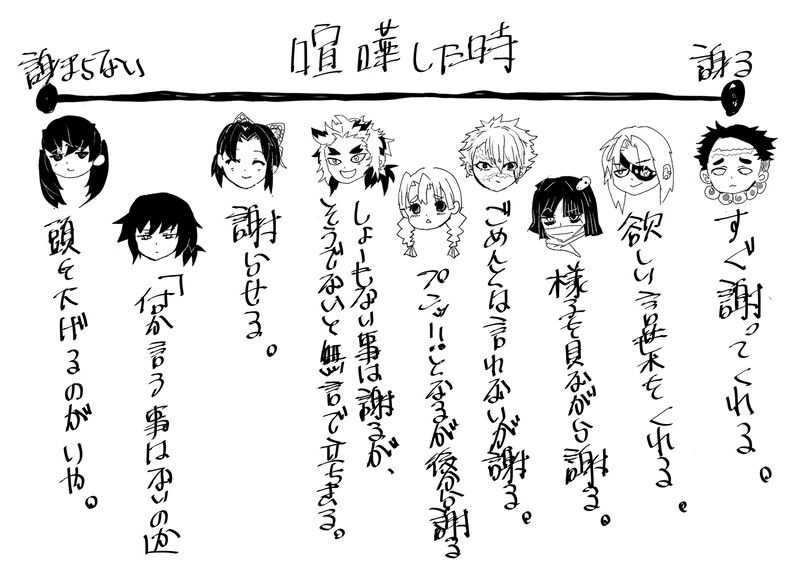 喧嘩した時
謝る
謝まらない
すぐ謝ってくれる。
欲しい言葉をくれる。
様子を見ながら謝る。
ごめんとは言れないが謝る。
プンッ!!となるが後分謝る
しょーもない事は謝るが、
そうでないと無言で立ちさる。
謝らせる。
「何か言う事はないのか」
頭を下げるのがいや。